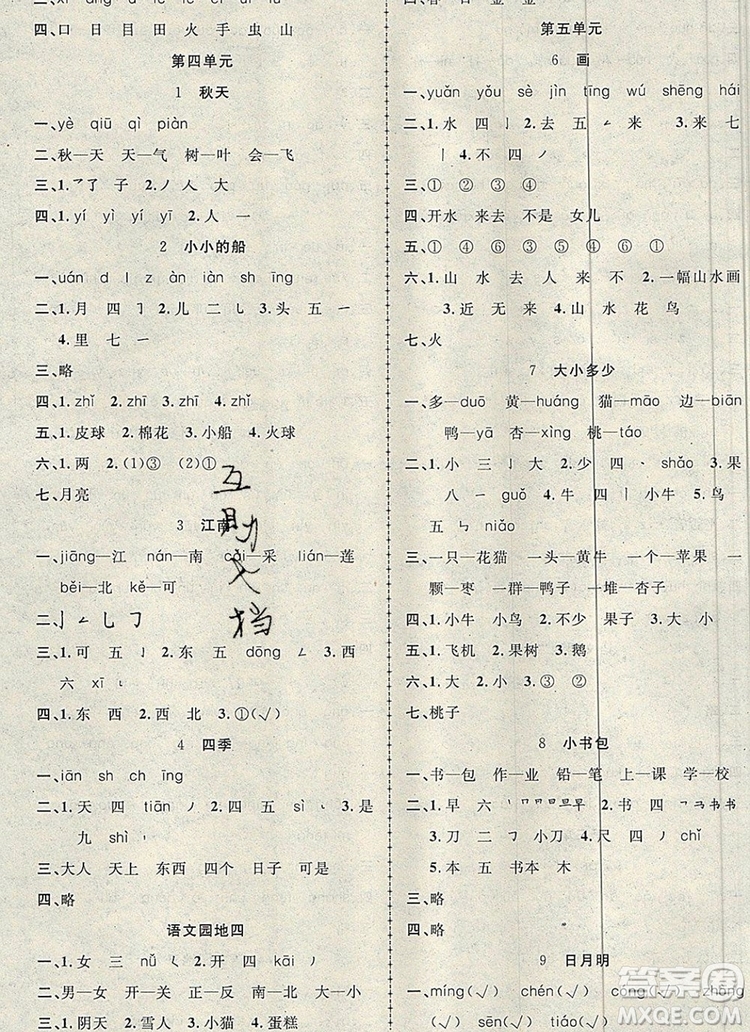 四、口 日 目 田 火 手 虫 山
第四单元
1 秋天
一、yè qiū qì piàn
二、秋—天 天—气 树—叶 会—飞
三、1.乛了 子 2.ノ 人 大
四、1.yí yí yì yī 2.人 一
2 小小的船
一、uán d l z àn iàn sh īng
二、1.月 四 ㇆ 2.儿 二 乚 3.头 五 一
4.里 七 一
三、略
四、1.zhǐ 2.zhī 3.zhǐ 4.zhǐ
五、1.皮球 2.棉花 3.小船 4.火球
六、1.两 2.(1)③ (2)①
七、月亮
3 江南
一、jiāng—江 nán—南 cǎi—采 lián—莲
běi—北 kě—可
二、亅 ㇀ 乚 ㇆
三、1.可 五 亅 2.东 五 dōng ㇀ 3.西
六 xī ㇄
四、1.东 西 2.西 北 3.①(√)
4 四季
一、iān sh ch īng
二、1.天 四 tiān ノ 2.四 五 sì ㇄ 3.是
九 shì 丶
三、大人 天上 东西 四个 日子 可是
四、略
语文园地四
一、1.女 三 nǚ ㇛ 2.开 四 kāi ノ
二、1.男—女 2.开—关 3.正—反
三、1.阴天 2.雪人 3.小猫 4.蛋糕
互助文档
第五单元
6 画
一、yuǎn yǒu sè jìn tīng wú shēng hái
二、1.水 四 亅 2.去 五 ㇀ 来 3.来 七
丨 4.不 四 ノ
三、① ① ② ②
四、开水 来去 不是 女儿
五、① ② ③ ④ ⑤ ⑥
六、1.山 水 人 来 不 2.一幅山水画
3.近 无 来 4.山 水 花 鸟
七、火
7 大小多少
一、多—duō 黄—huáng 猫—māo 边—biān
鸭—yā 杏—xìng 桃—táo
二、1.小 三 亅 大 2.少 四 丶 shǎo 3.果
八 一 guǒ 4.牛 四 丨 小牛 5.鸟
五 ㇉ niǎo
三、一只—花猫 一头—黄牛 一个—苹果 一
颗—枣 一群—鸭子 一堆—杏子
四、1.小牛 小鸟 2.不少 果子 3.大 小
五、1.飞机 2.果树 3.鹅
六、1.大 小 2.小 大 3.③ ②
七、桃子
8 小书包
一、书—包 作—业 铅—笔 上—课 学—校
二、1.早 六 2.书 四
3.刀 二 ㇆ 小刀 4.尺 四 ノ chǐ
5.本 五 书本 木
三、略
四、略
9 日月明
一、míng(√) chén(√) cóng(√) zhōng
(√) sēn(√) tiáo(√)
答案圈
MXQE.COM